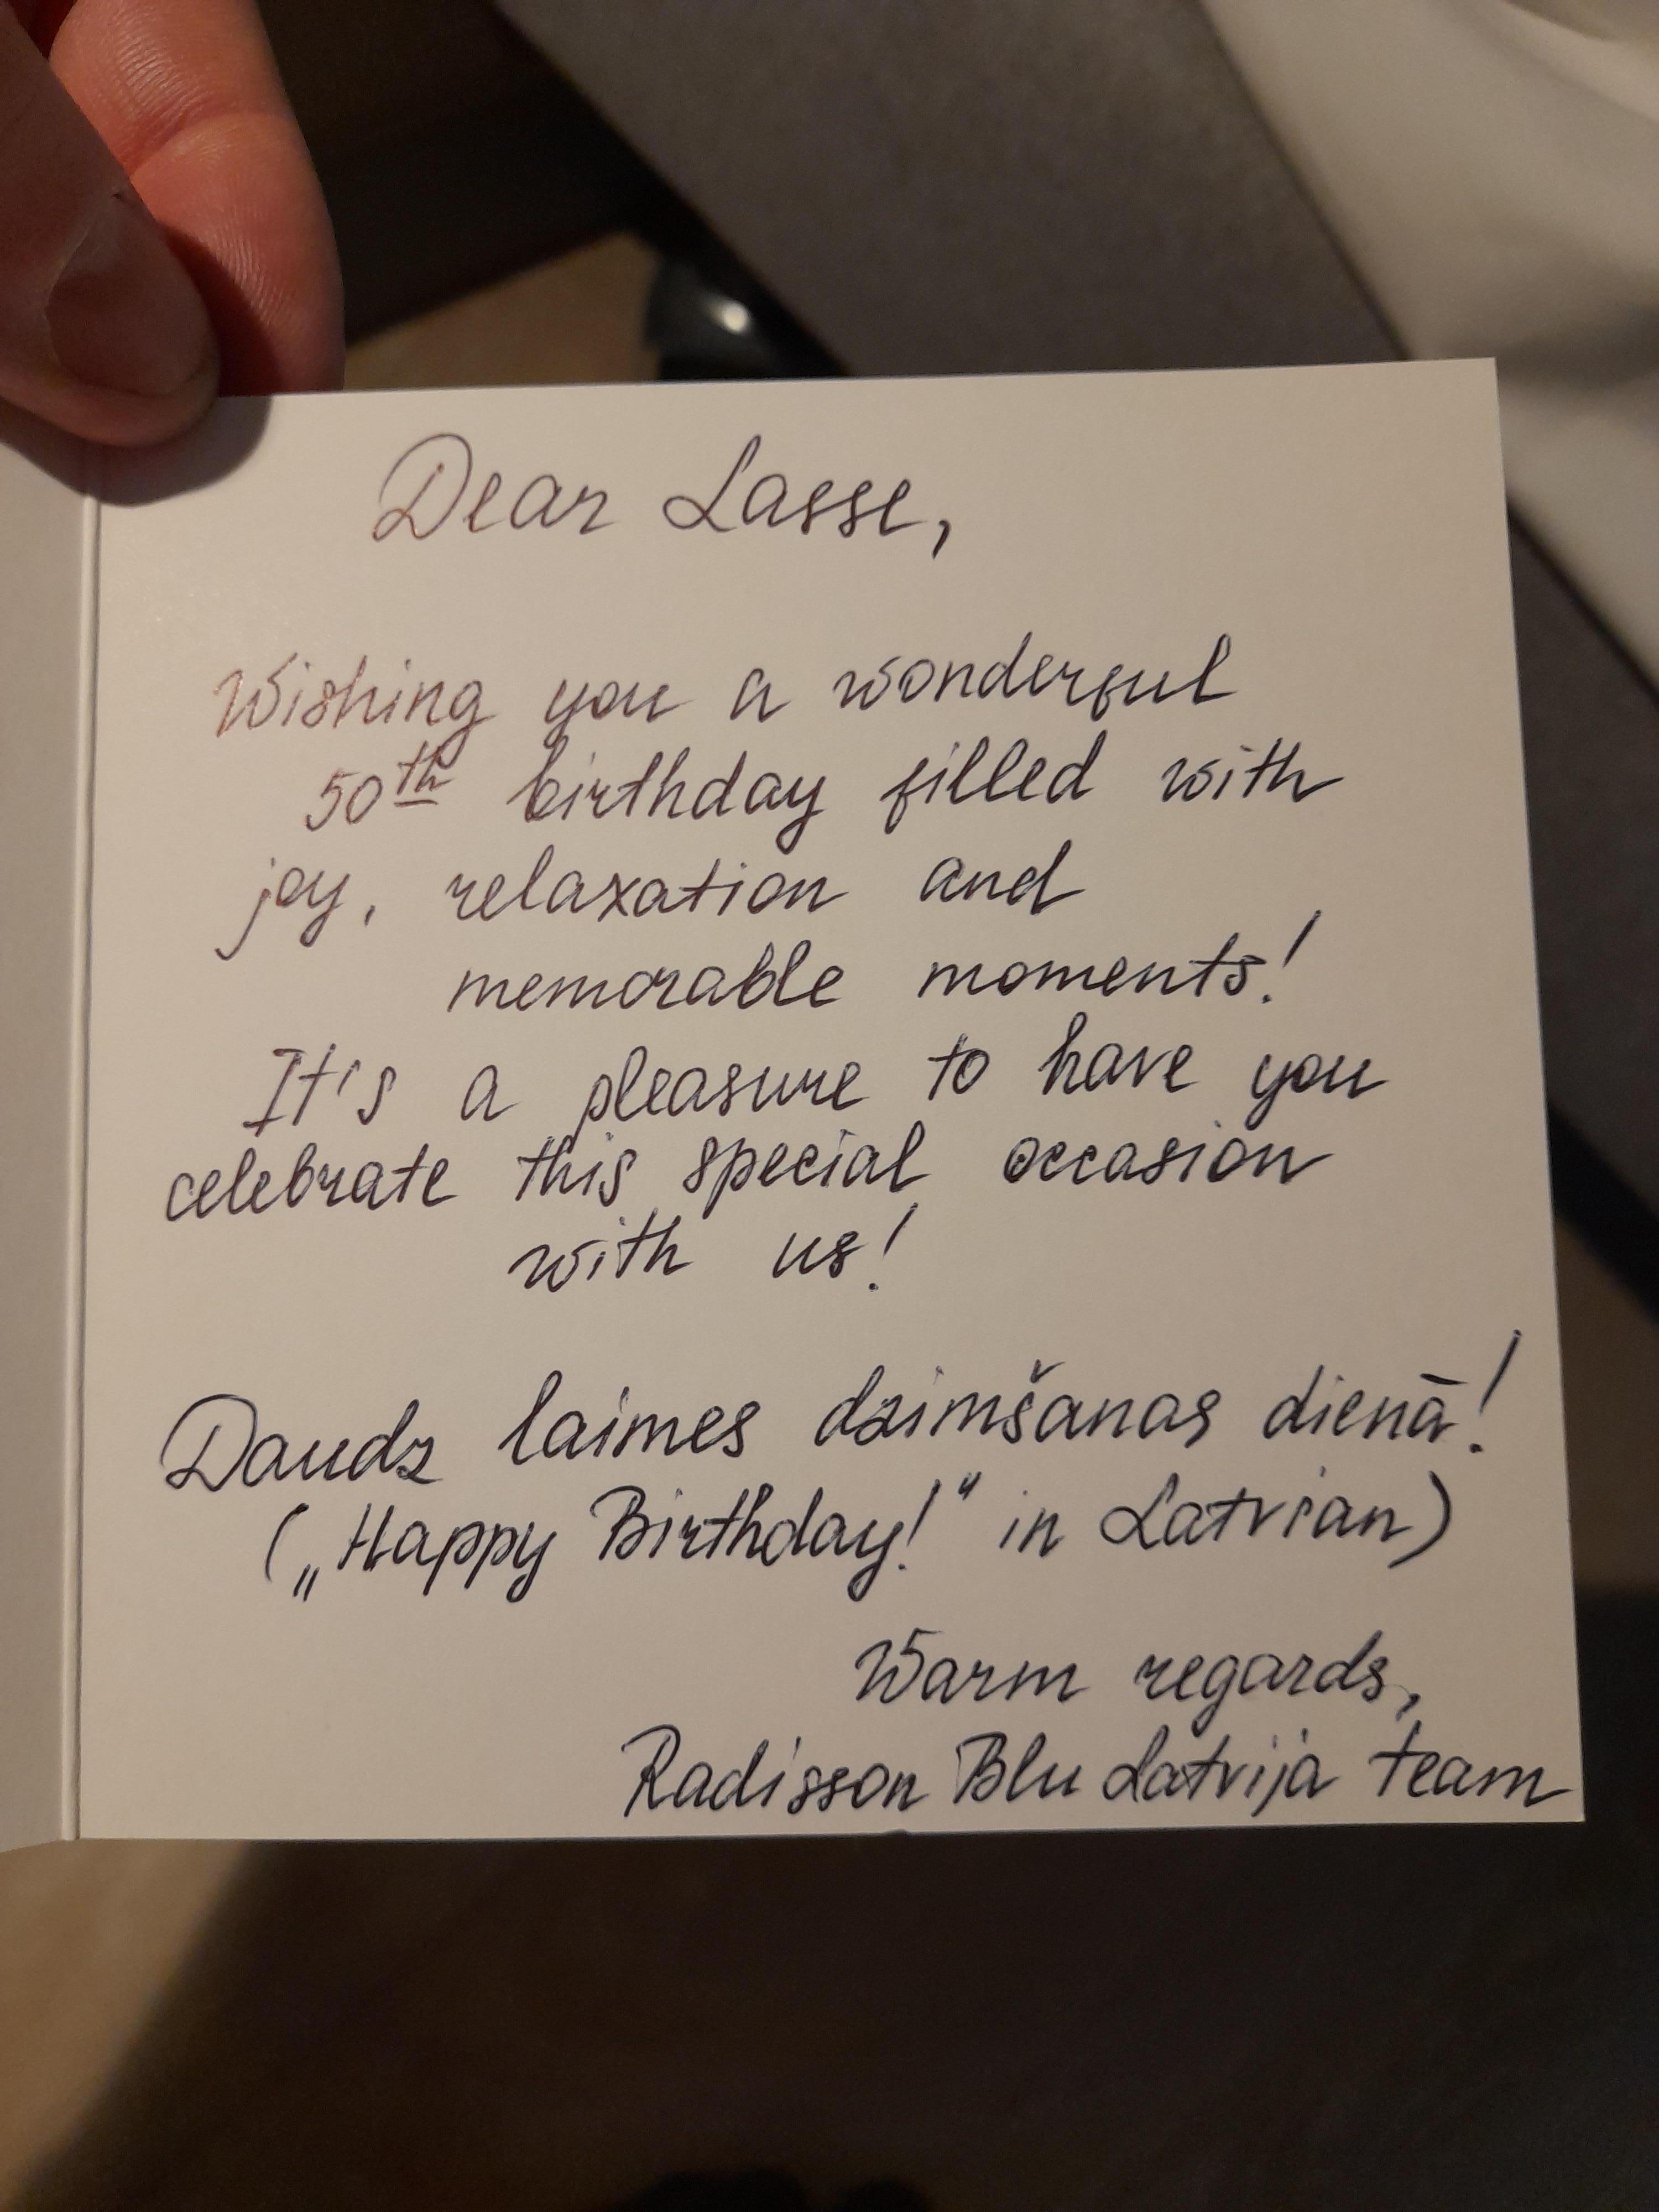 Dear Lasse,
Wishing you a wonderful
50th birthday filled with
joy, relaxation and
memorable moments!
It's a pleasure to have you
celebrate this special occasion
with us!
Daudz laimes dzimšanas dienā!
(„Happy Birthday!“ in Latvian)
Warm regards,
Radisson Blu Latvija team